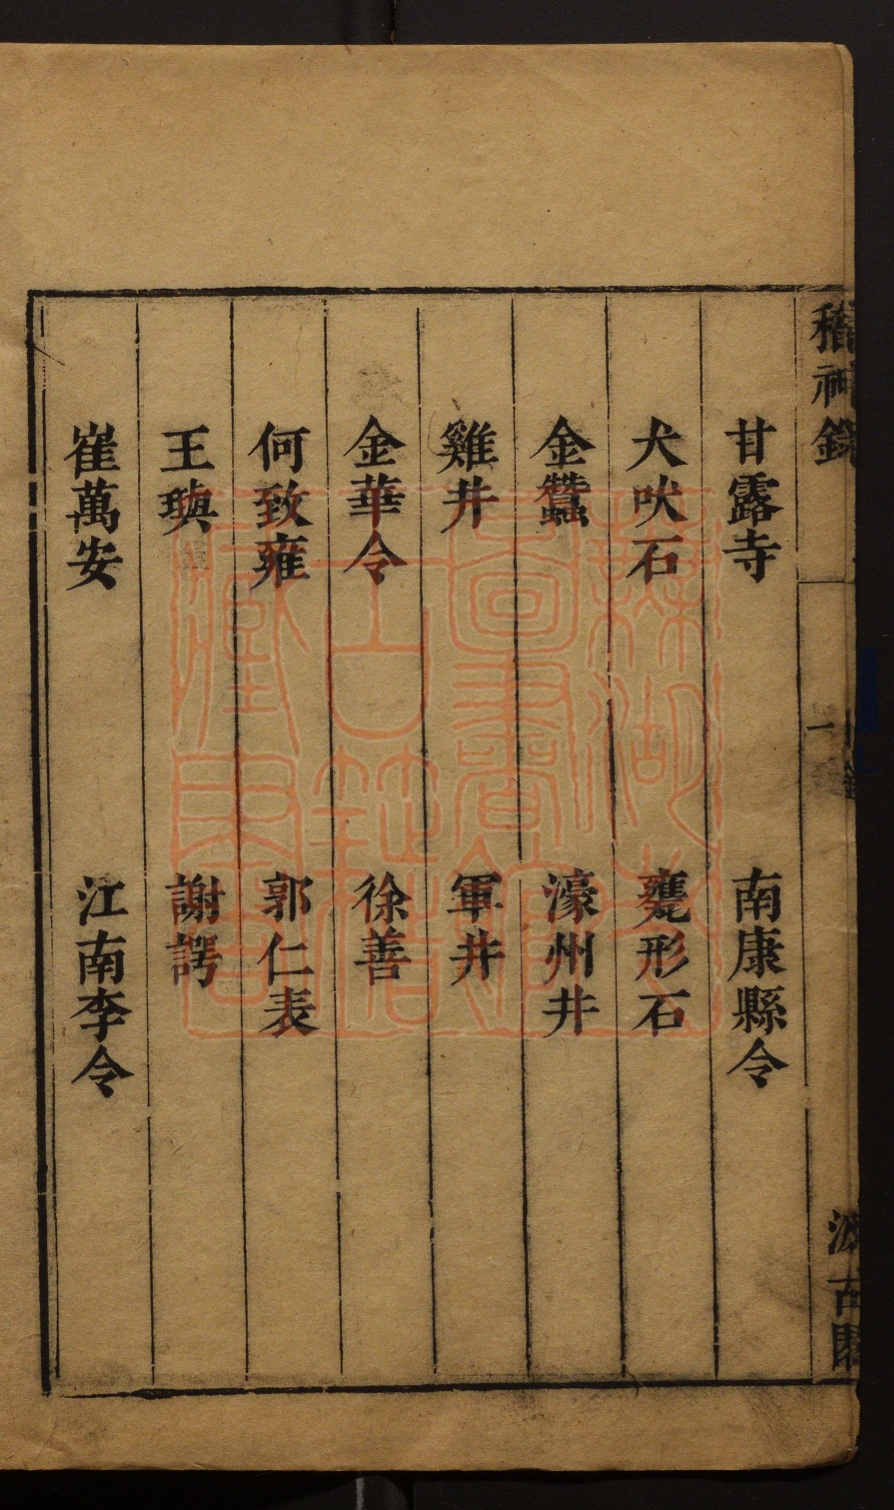 稽神錄
一
汲古閣
甘露寺　南康縣令
犬吠石　甕形石
金蠶　濠州井
雞井　軍井
金華令　徐善
何致雍　郭仁表
王璵　謝諤
崔萬安　江南李令